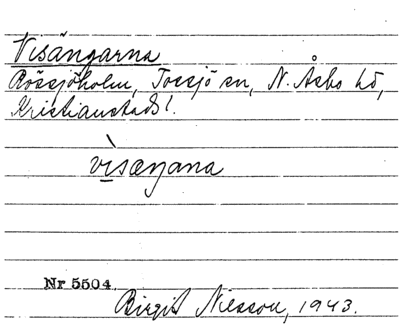 Visängarna
Rössjöholm, Tossjö sn, N. Åsbo hd,
Kristianstads l.
vìsæŋana
Nr 5504
Birgit Nilsson, 1943.